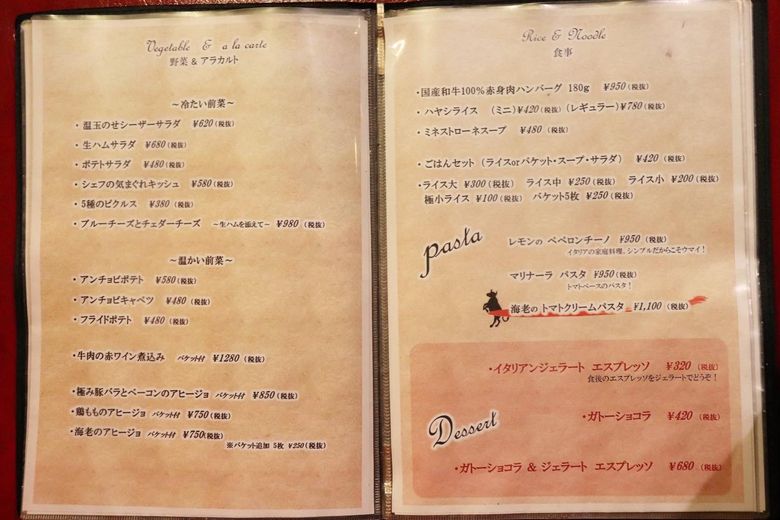 Vegetable & a la carte
野菜 & アラカルト
～冷たい前菜～
・温玉のせシーザーサラダ ¥620(税抜)
・生ハムサラダ ¥680(税抜)
・ポテトサラダ ¥480(税抜)
・シェフの気まぐれキッシュ ¥580(税抜)
・5種のピクルス ¥380(税抜)
・ブルーチーズとチェダーチーズ ～生ハムを添えて～ ¥980(税抜)
～温かい前菜～
・アンチョビポテト ¥580(税抜)
・アンチョビキャベツ ¥480(税抜)
・フライドポテト ¥480(税抜)
・牛肉の赤ワイン煮込み バケット付 ¥1280(税抜)
・極み豚バラとベーコンのアヒージョ バケット付 ¥850(税抜)
・鶏もものアヒージョ バケット付 ¥750(税抜)
・海老のアヒージョ バケット付 ¥750(税抜)
※バケット追加 5枚 ¥250(税抜)
Rice & Noodle
食事
・国産和牛100%赤身肉ハンバーグ 180g ¥950(税抜)
・ハヤシライス (ミニ)¥420(税抜) (レギュラー)¥780(税抜)
・ミネストローネスープ ¥480(税抜)
・ごはんセット (ライスorバケット・スープ・サラダ) ¥420(税抜)
・ライス大 ¥300(税抜) ライス中 ¥250(税抜) ライス小 ¥200(税抜)
極小ライス ¥100(税抜) バケット5枚 ¥250(税抜)
pasta
レモンの ペペロンチーノ ¥950(税抜)
イタリアの家庭料理。シンプルだからこそウマイ！
マリナーラ パスタ ¥950(税抜)
トマトベースのパスタ！
海老の トマトクリームパスタ ¥1,100(税抜)
・イタリアンジェラート エスプレッソ ¥320(税抜)
食後のエスプレッソをジェラートでどうぞ！
Dessert
・ガトーショコラ ¥420(税抜)
・ガトーショコラ & ジェラート エスプレッソ ¥680(税抜)